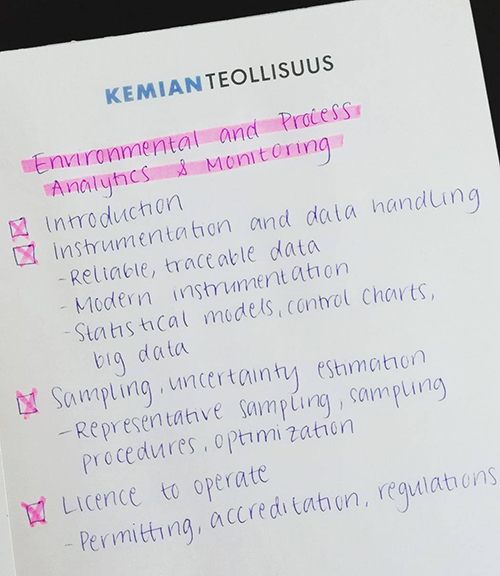 KEMIANTEOLLISUUS
Environmental and Process
Analytics & Monitoring
Introduction
Instrumentation and data handling
- Reliable, traceable data
- Modern instrumentation
- Statistical models, control charts,
big data
Sampling, uncertainty estimation
- Representative sampling, sampling
procedures, optimization
Licence to operate
- Permitting, accreditation, regulations